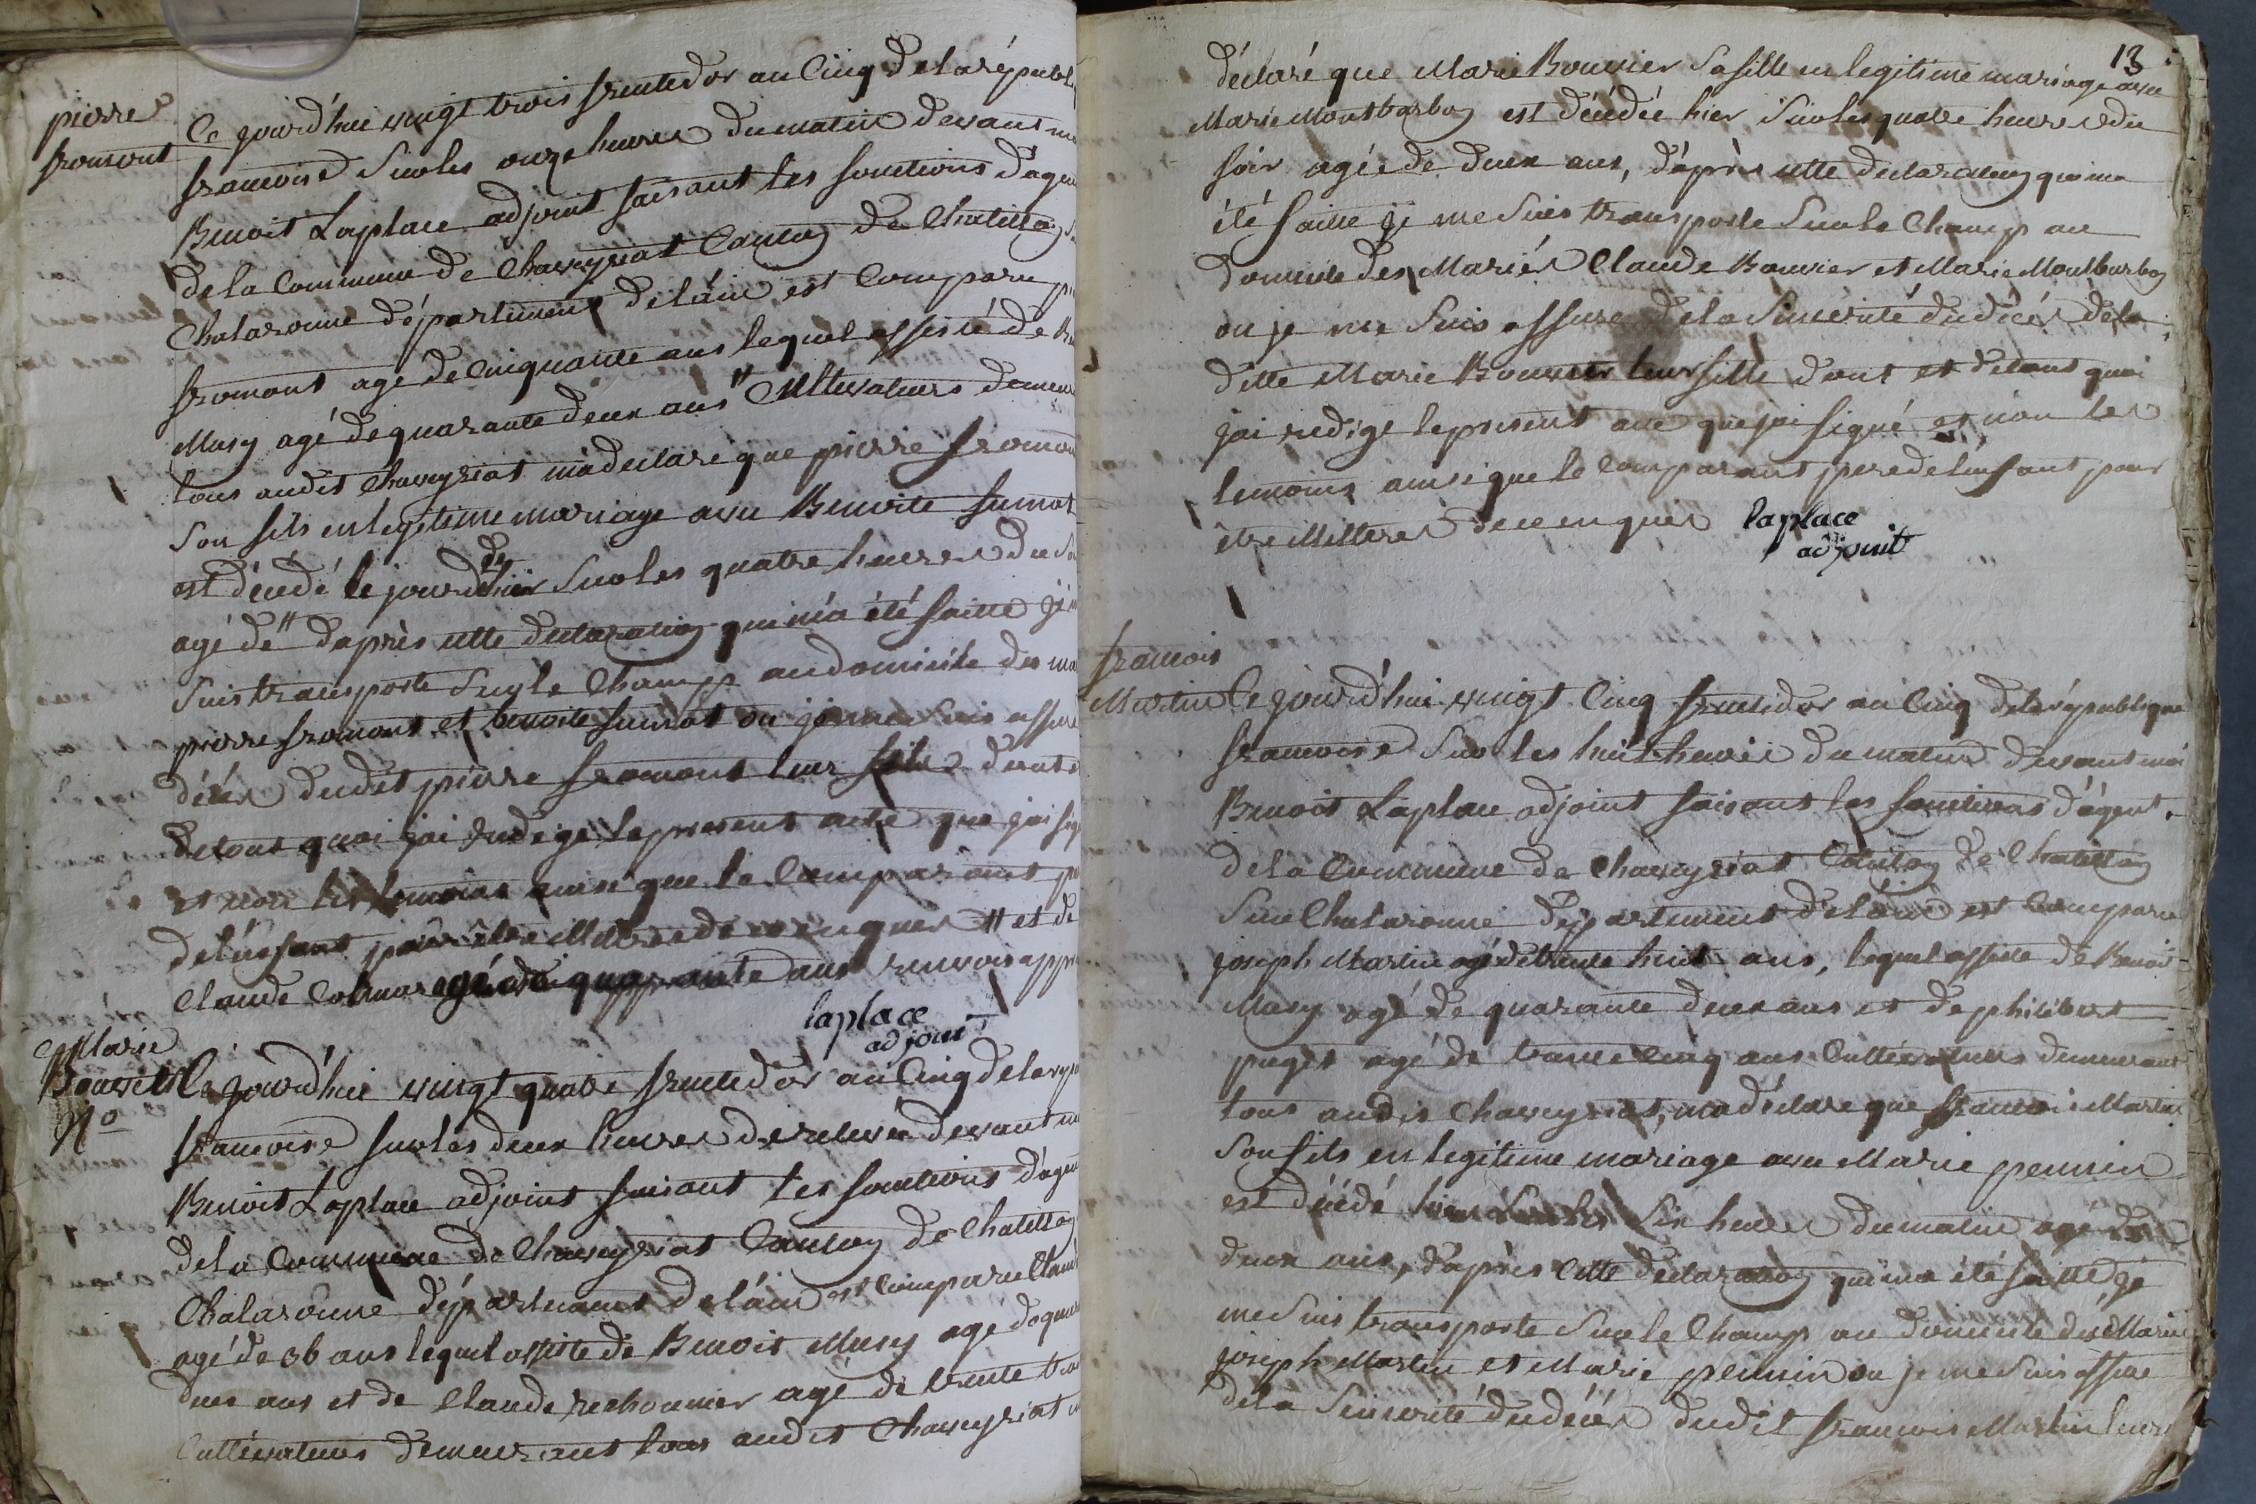 pierre
fromont
Ce jourd'hui vingt trois fructidor an Cinq de la républi
francoise Sur les onze heures du matin devant m
Benoit Laplace adjoint faisant les fonctions d'agen
de la Commune de Chaveyriat Canton de Chatillon S
Chalaronne département de l'ain est Comparu pi
fromont agé de Cinquante ans lequel assisté de B
Musy agé de quarante deux ans # Cultivateurs demeu
tous audit Chaveyriat m'a declaré que pierre fromon
Son fils en legitime mariage avec Benoite
est décédé le jour d'hier Sur les quatre heures du So
agé de # d'après cette declaration qui m'a été faitte je m
Suis transporté Sur le Champ au domicile des ma
pierre fromont et benoite ou je me Suis assuré
décés dudit pierre fromont leur fils dont
de tout quoi j'ai redigé le present acte que j'ai sig
et non les temoins ainsi que le Comparant p
de l'enfant pour être illitere de ce enquis # et de
Claude agé de quarante ans renvois app
laplace
adjoint
Marie
Bouvier
N°
Ce jourd'hui vingt quatre fructidor an Cinq de la rép
francoise Sur les deux heures de relevée devant m
Benoit Laplace adjoint faisant les fonctions d'agen
de la Commune de Chaveyriat Canton de Chatillon
Chalaronne département de l'ain est Comparu Claud
agé de 36 ans lequel assisté de Benoit Musy agé de qua
deux ans et de Claude agé de trente tro
Cultivateurs demeurant tous audit Chaveyriat m
13
déclaré que Marie Bouvier Sa fille en legitime mariage avec
Marie Montbarbon est décédée hier Sur les quatre heures du
soir agée de deux ans, d'après cette declaration qui ma
été faitte je me Suis transporté Sur le Champ au
domicile des Mariés Claude Bouvier et Marie Montbarbon
ou je me Suis assuré de la Sincerité du décés de la
ditte Marie Bouvier leur fille dont et de tout quoi
j'ai redigé le present acte que j'ai signé et non les
temoins ainsi que le Comparant pere de l'enfant pour
être illiteres de ce enquis laplace
adjoint
francois
Martin
Ce jourd'hui vingt Cinq fructidor an Cinq de la république
francoise Sur les huit heures du matin devant moi
Benoit Laplace adjoint faisant les fonctions d'agent
de la Commune de Chaveyriat Canton de Chatillon
Sur Chalaronne département de l'ain est Comparu
joseph Martin agé de trente huit ans, lequel assisté de Benoit
Musy agé de quarante deux ans et de philibert
puget agé de trente Cinq ans Cultivateurs demeurant
tous audit Chaveyriat, m'a déclaré que francois Martin
Son fils en legitime mariage avec Marie pennin
est décédé hier Sur les Six heures du matin agé de
deux ans, d'après Cette declaration qui ma été faitte, je
me Suis transporté Sur le Champ au domicile des Mariés
joseph Martin et Marie pennin ou je me Suis assuré
de la Sincerité du décés dudit francois Martin leur